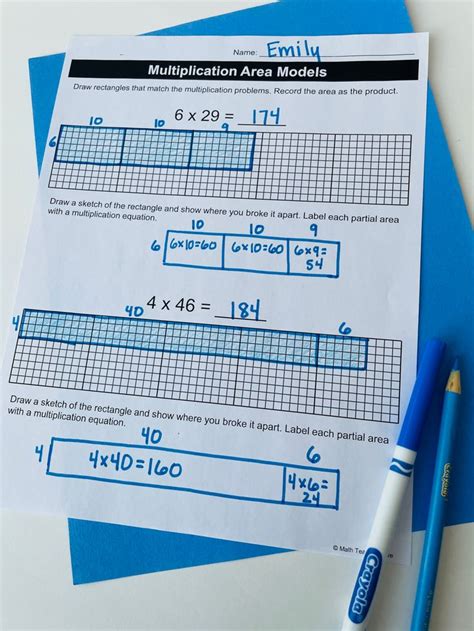 Name: Emily
Multiplication Area Models
Draw rectangles that match the multiplication problems. Record the area as the product.
6 x 29 = 174
10 10 9
6
Draw a sketch of the rectangle and show where you broke it apart. Label each partial area
with a multiplication equation.
10 10 9
6 6x10=60 6x10=60 6x9=
54
4 x 46 = 184
40 6
4
Draw a sketch of the rectangle and show where you broke it apart. Label each partial area
with a multiplication equation.
40 6
4 4x40=160 4x6=
24
© Math
Crayola